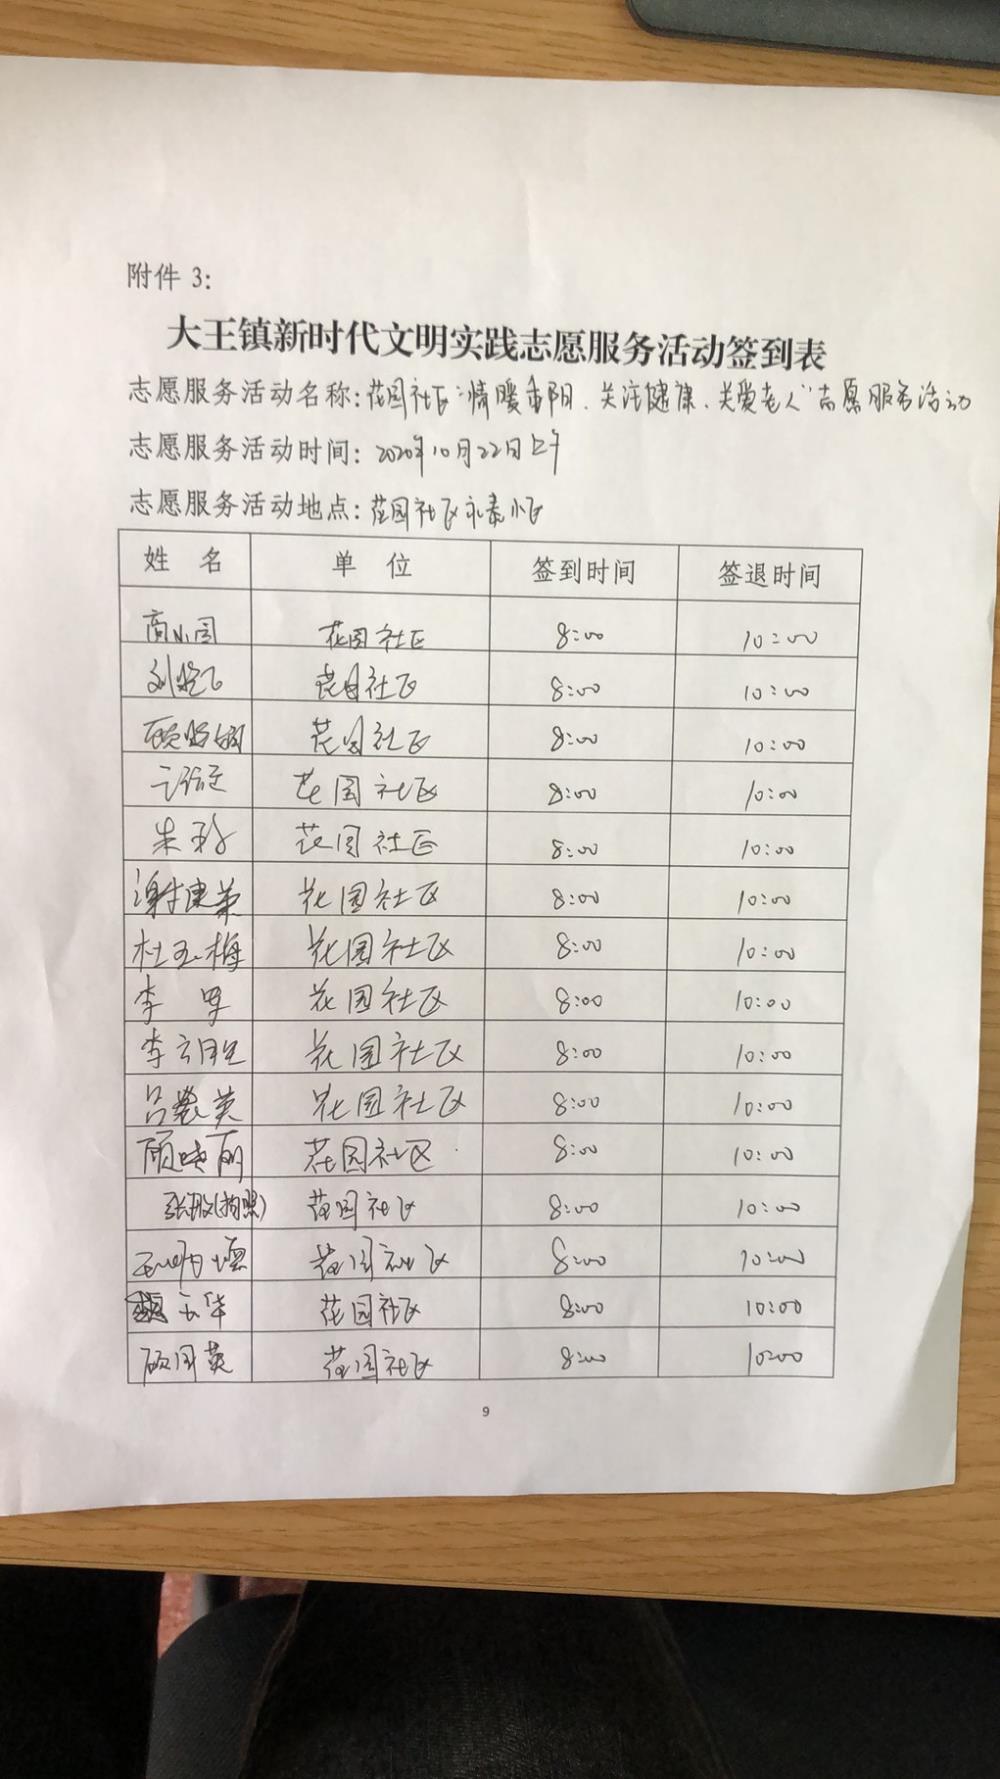 附件 3：
大王镇新时代文明实践志愿服务活动签到表
志愿服务活动名称：花园社区"情暖重阳、关注健康、关爱老人"志愿服务活动
志愿服务活动时间：2020年10月22日上午
志愿服务活动地点：花园社区 小区
姓 名 单 位 签到时间 签退时间
花园社区 8:00 10:00
花园社区 8:00 10:00
花园社区 8:00 10:00
花园社区 8:00 10:00
朱 花园社区 8:00 10:00
谢建英 花园社区 8:00 10:00
杜玉梅 花园社区 8:00 10:00
李 花园社区 8:00 10:00
李 花园社区 8:00 10:00
吕 英 花园社区 8:00 10:00
顾晓丽 花园社区 8:00 10:00
张 (拍照) 花园社区 8:00 10:00
花园社区 8:00 10:00
玉华 花园社区 8:00 10:00
顾国英 花园社区 8:00 10:00
9